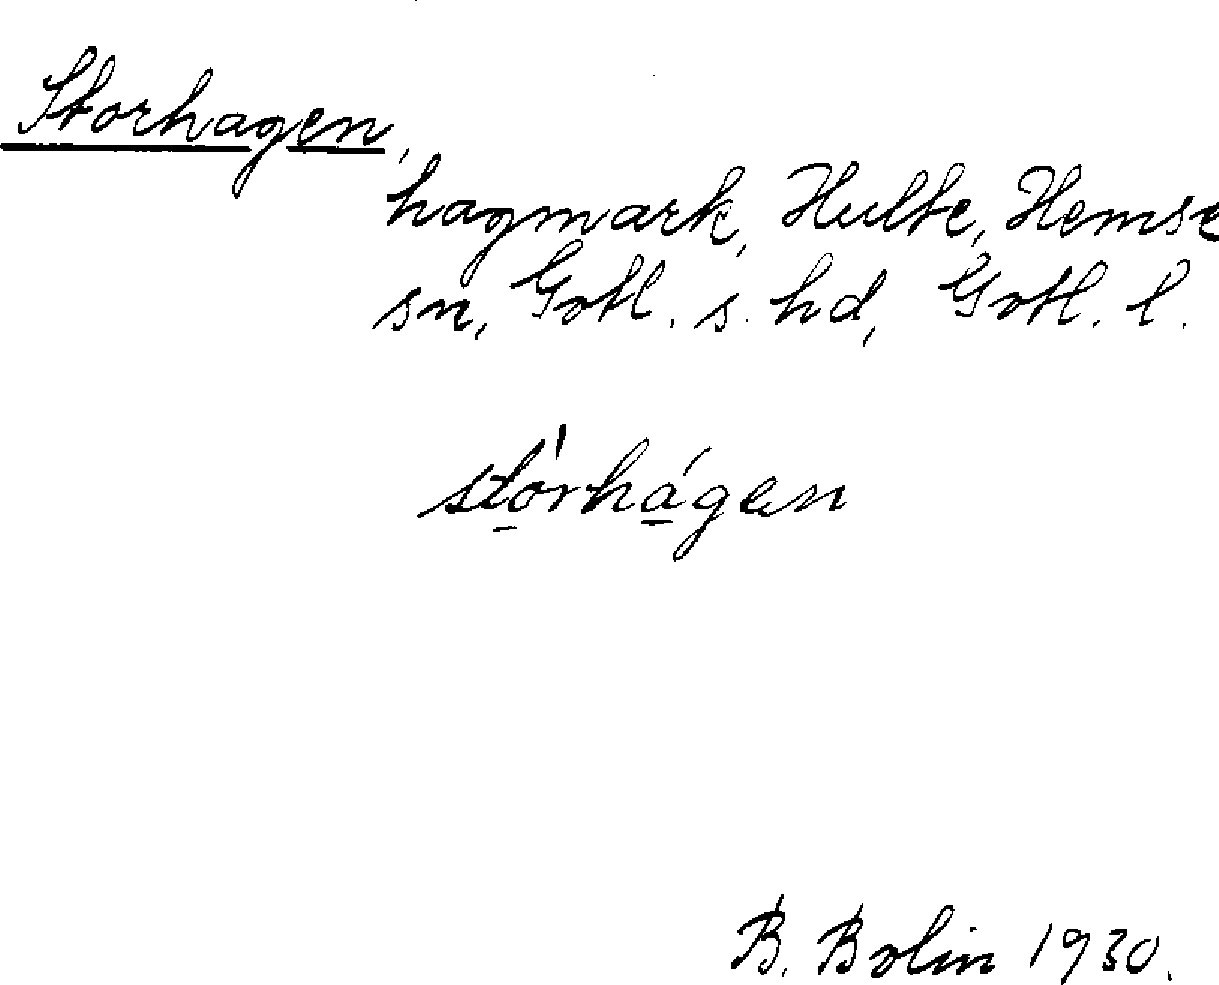 Storhagen,
hagmark, Hulte, Hemse
sn, Gotl. s. hd, Gotl. l.
sto̠̍rhá̠gæn
B. Bolin 1930.